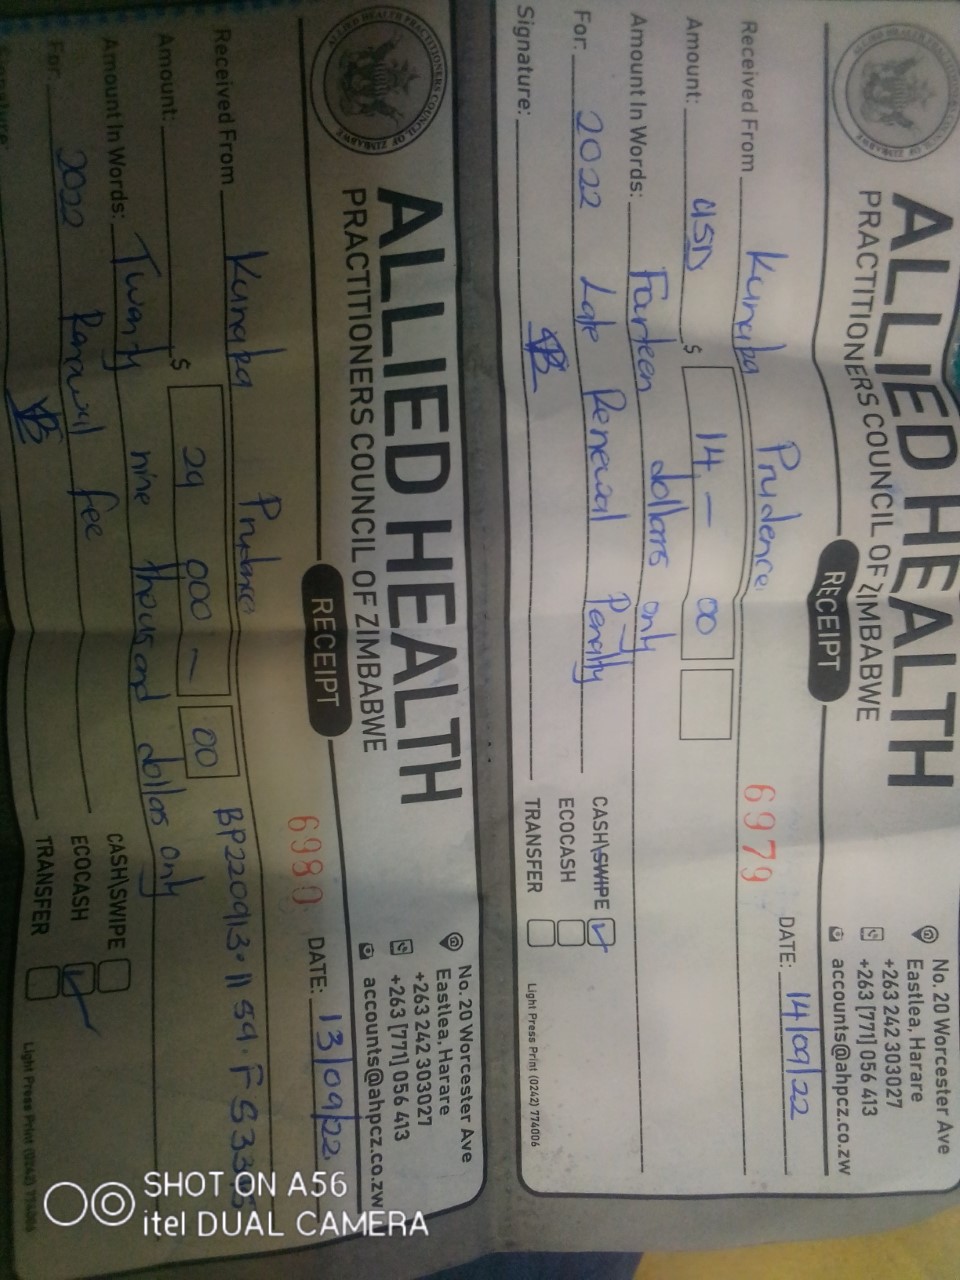 ALLIED HEALTH PRACTITIONERS COUNCIL OF ZIMBABWE
ALLIED HEALTH
PRACTITIONERS COUNCIL OF ZIMBABWE
No. 20 Worcester Ave
Eastlea, Harare
+263 242 303027
+263 [771] 056 413
accounts@ahpcz.co.zw
RECEIPT
6979
DATE: 14/09/22
Received From Kunaka Prudence
Amount: USD $ 14 - 00
Amount In Words: Forteen dollars only
For: 2022 Late Renewal Penalty
Signature:
CASH\SWIPE
ECOCASH
TRANSFER
Light Press Print (0242) 774006
ALLIED HEALTH PRACTITIONERS COUNCIL OF ZIMBABWE
ALLIED HEALTH
PRACTITIONERS COUNCIL OF ZIMBABWE
No. 20 Worcester Ave
Eastlea, Harare
+263 242 303027
+263 [771] 056 413
accounts@ahpcz.co.zw
RECEIPT
6980
DATE: 13/09/22
Received From Kunaka Prudence
Amount: $ 29 000 - 00
Amount In Words: Twenty nine thousand dollars only
For: 2022 Renewal fee
CASH\SWIPE
ECOCASH
TRANSFER
Light Press Print (0242) 774006
SHOT ON A56
itel DUAL CAMERA